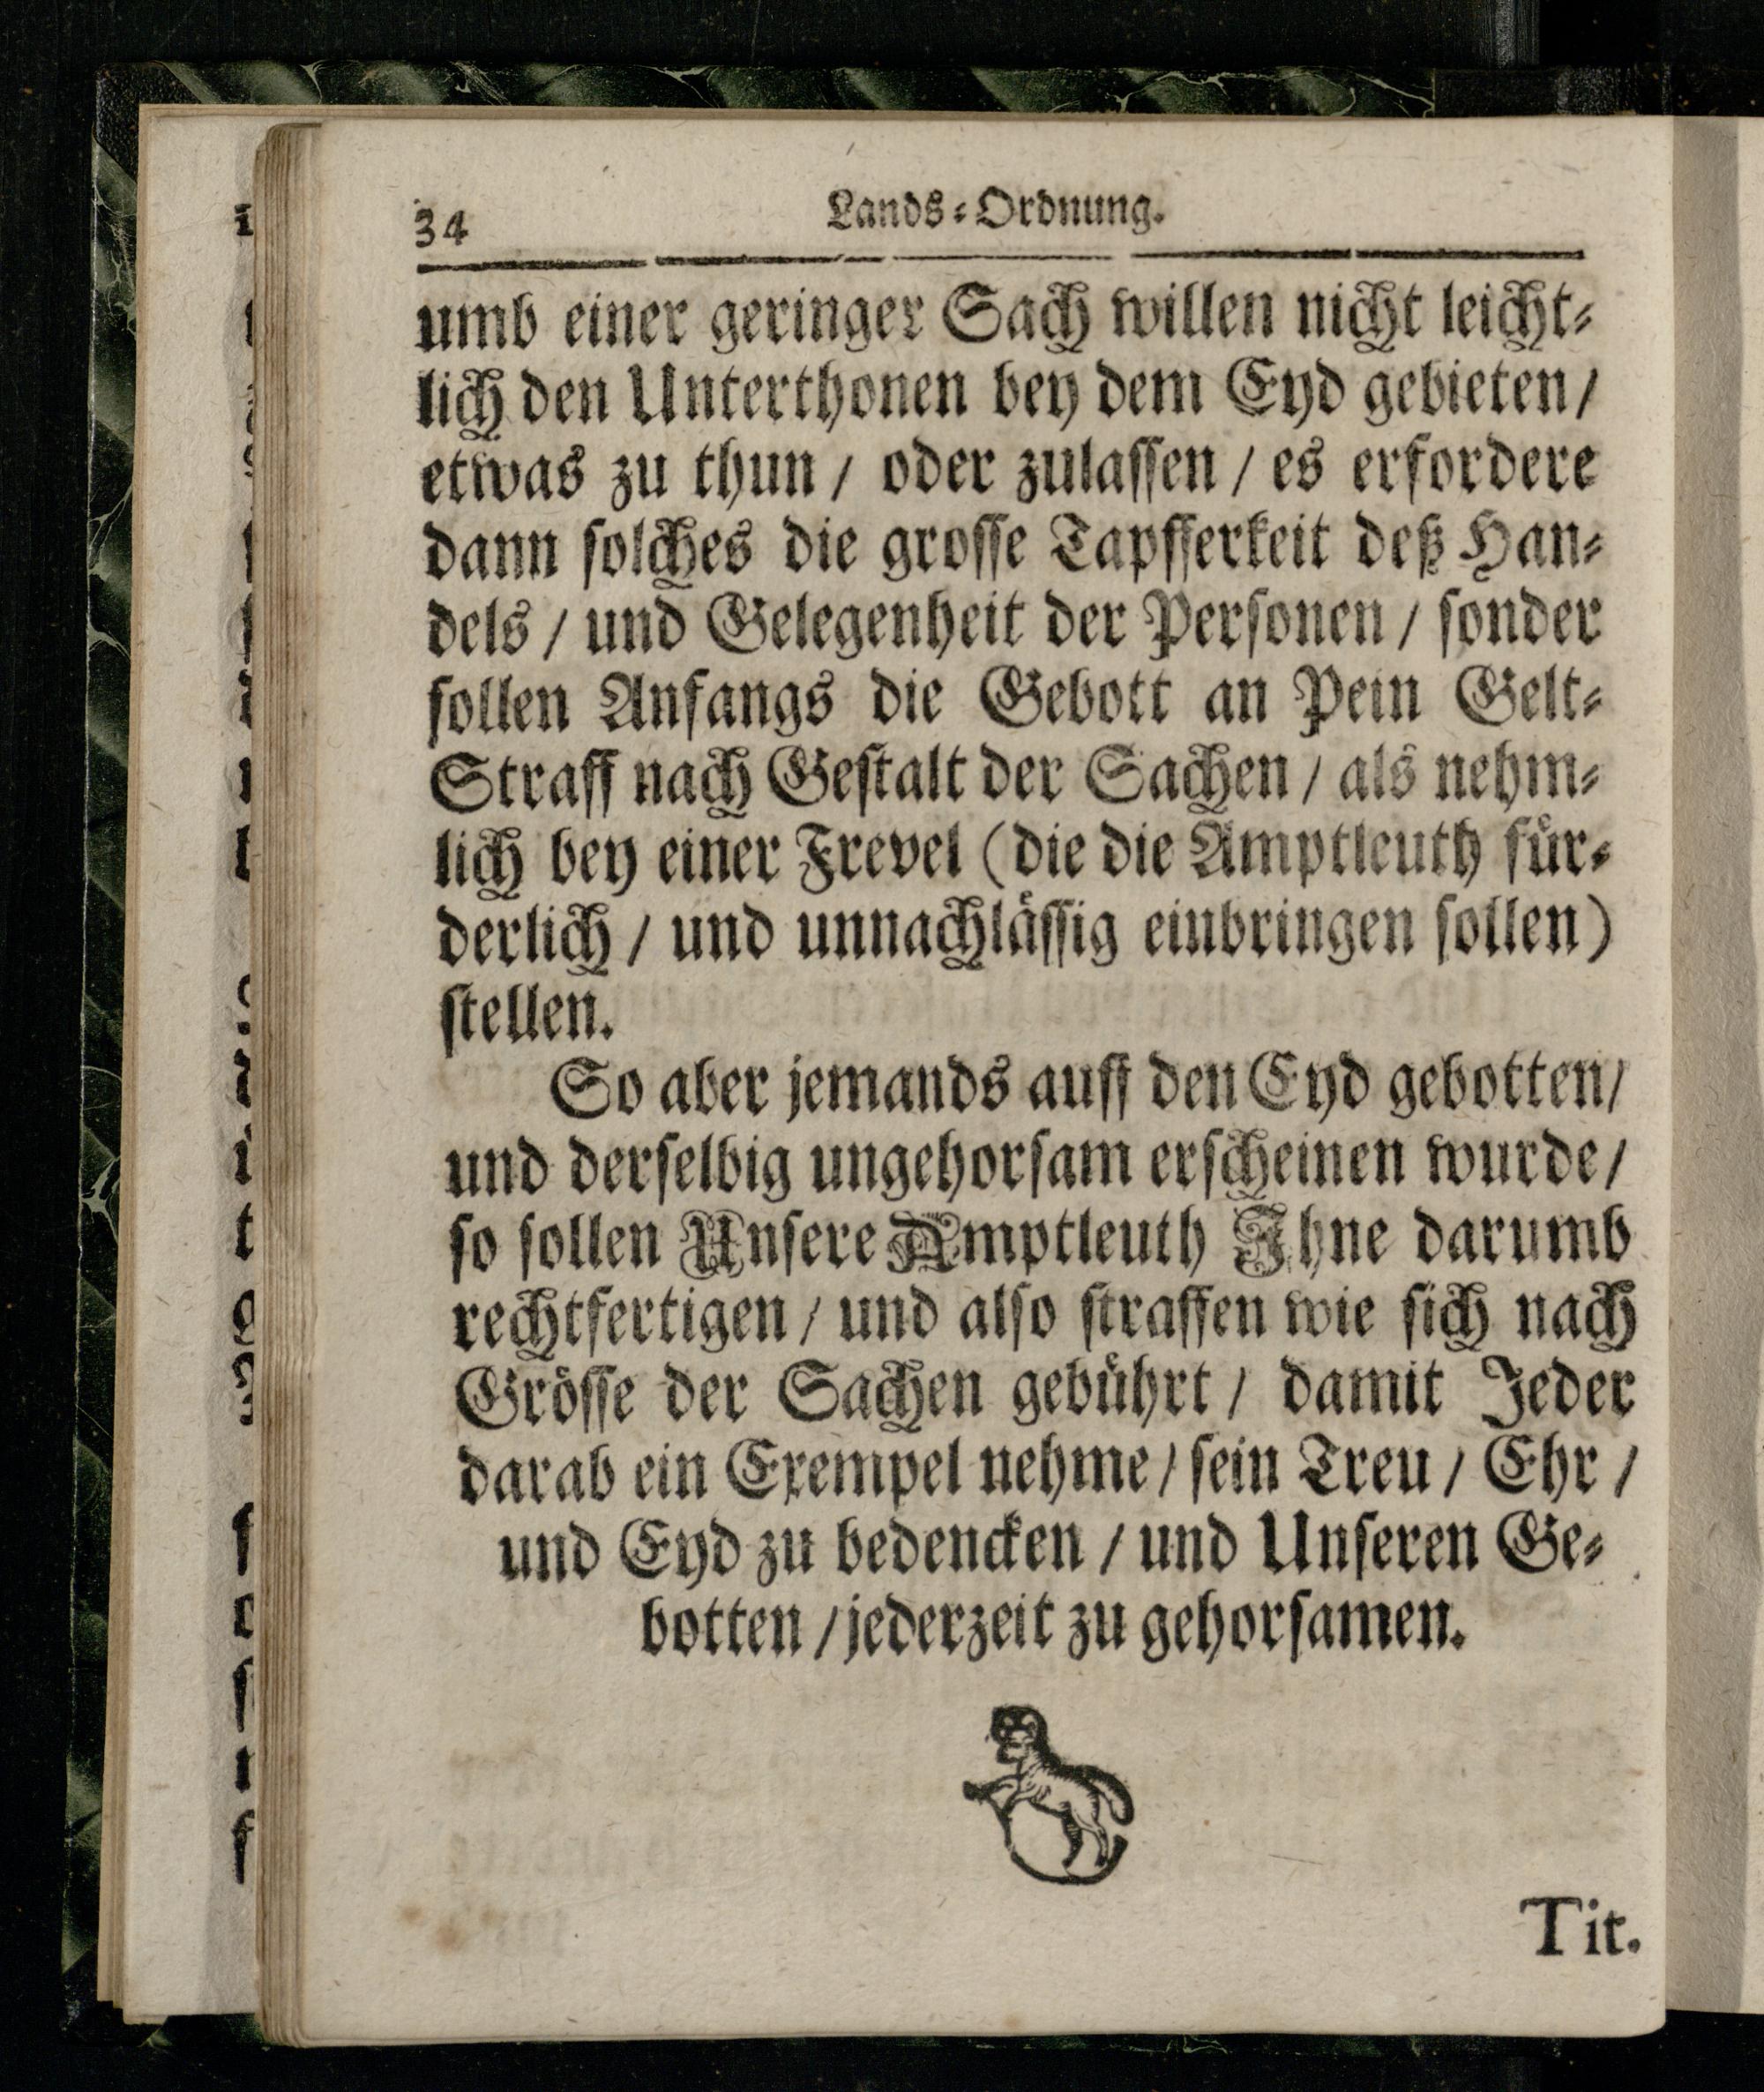 34
Lands-Ordnung.
umb einer geringer Sach willen nicht leicht-
lich den Unterthonen bey dem Eyd gebieten /
etwas zu thun / oder zulassen / es erfordere
dann solches die grosse Tapfferkeit deß Han-
dels / und Gelegenheit der Personen / sonder
sollen Anfangs die Gebott an Pein Gelt-
Straff nach Gestalt der Sachen / als nehm-
lich bey einer Frevel (die die Amptleuth für-
derlich / und unnachlässig einbringen sollen)
stellen.
So aber jemands auff den Eyd gebotten /
und derselbig ungehorsam erscheinen wurde /
so sollen Unsere Amptleuth Ihne darumb
rechtfertigen / und also straffen wie sich nach
Grösse der Sachen gebührt / damit Jeder
darab ein Exempel nehme / sein Treu / Ehr /
und Eyd zu bedencken / und Unseren Ge-
botten / jederzeit zu gehorsamen.
Tit.